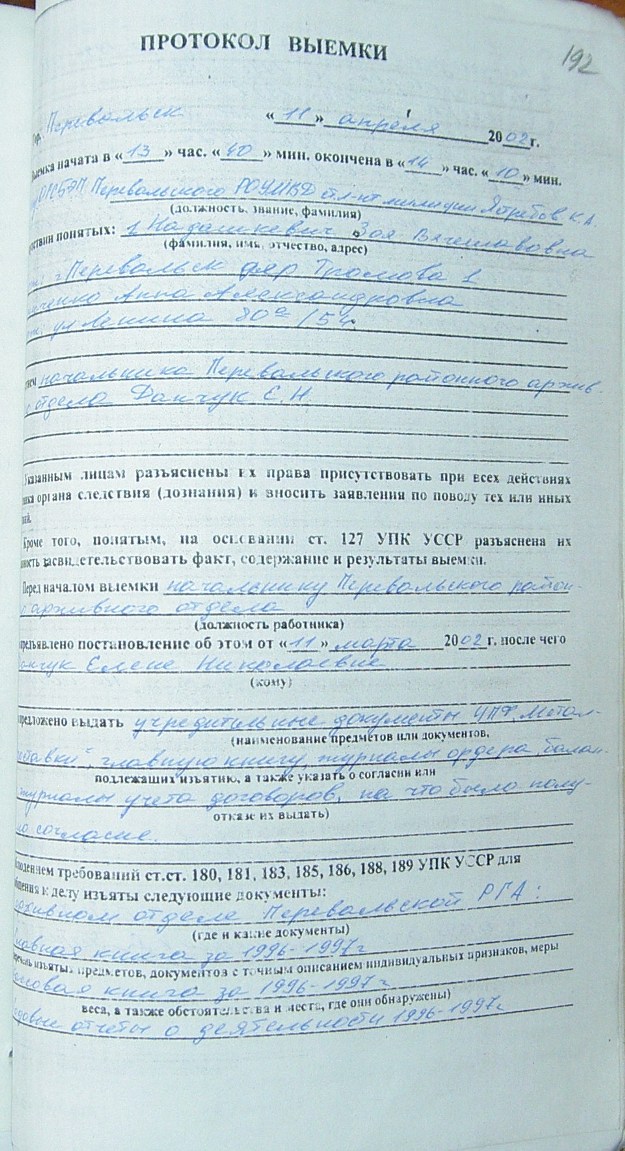 ПРОТОКОЛ ВЫЕМКИ
192
гор. Перевальск «11» апреля 2002г.
Выемка начата в «13» час. «40» мин. окончена в «14» час. «10» мин.
Перевальского РОУМВД ст. л-нт милиции К.А.
(должность, звание, фамилия)
понятых: 1 Кадашкевич Зоя Вячеславовна
(фамилия, имя, отчество, адрес)
г. Перевальск Громова 1
Анна Александровна
ул Ленина 80а/54
начальника Перевальского районного архив-
отдела Данчук Е.Н.
Указанным лицам разъяснены их права присутствовать при всех действиях
органа следствия (дознания) и вносить заявления по поводу тех или иных
Кроме того, понятым, на основании ст. 127 УПК УССР разъяснена их
засвидетельствовать факт, содержание и результаты выемки.
Перед началом выемки начальнику Перевальского район-
архивного отдела
(должность работника)
предъявлено постановление об этом от «11» марта 2002г. после чего
Елене Николаевне
(кому)
предложено выдать учредительные документы ЧПФ „Метал-
(наименование предметов или документов,
главную книгу, журналы ордера, балан-
подлежащих изъятию, а также указать о согласии или
журналы учета договоров, на что было полу-
отказе их выдать)
согласие.
требований ст.ст. 180, 181, 183, 185, 186, 188, 189 УПК УССР для
к делу изъяты следующие документы:
архивном отделе Перевальской РГА:
(где и какие документы)
главная книга за 1996-1997г
изъятых предметов, документов с точным описанием индивидуальных признаков, меры
книга за 1996-1997г
веса, а также обстоятельства и места, где они обнаружены)
отчеты о деятельности 1996-1997г